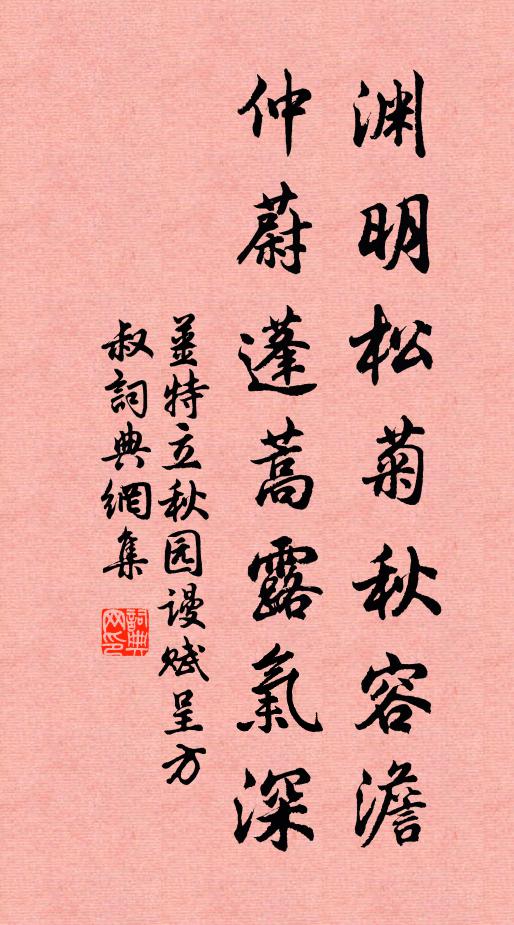 渊明松菊秋容澹
仲蔚蓬蒿露氣深
姜特立秋园谩赋呈方
叔詞典網集
詞典网印